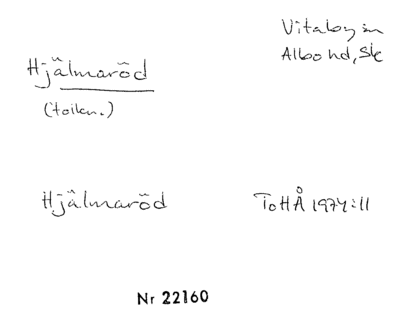 Vitaby sn
Albo hd, Sk
Hjälmaröd
(tolkn.)
Hjälmaröd
ToHÅ 1974:11
Nr 22160